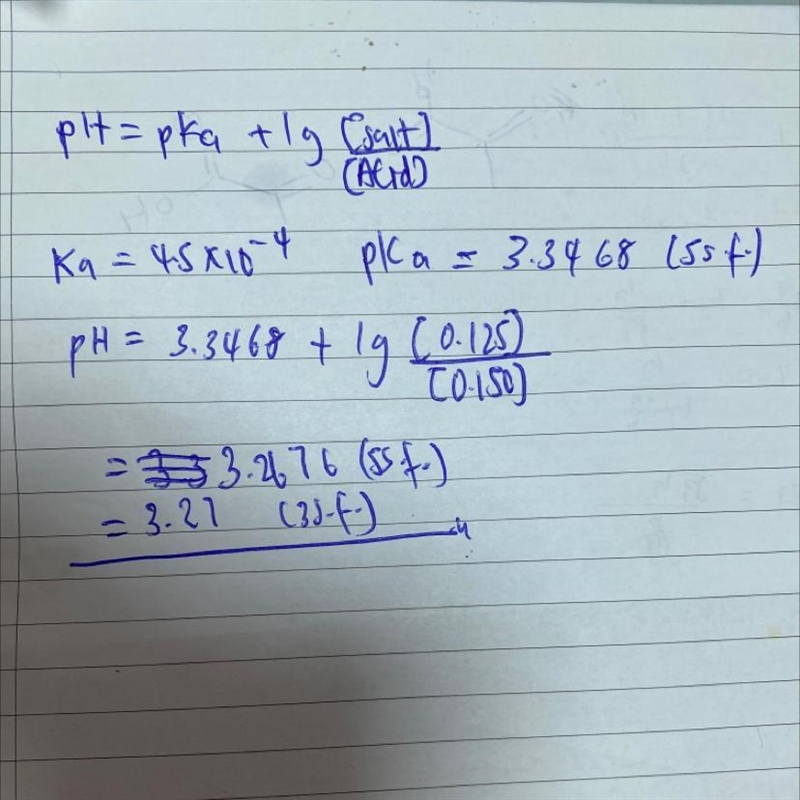 pH = pKa + lg [salt]
[Acid]
Ka = 4.5 × 10⁻⁴ pKa = 3.3468 (5s.f.)
pH = 3.3468 + lg [0.125]
[0.150]
= 3.2676 (5s.f.)
= 3.27 (3s.f.)